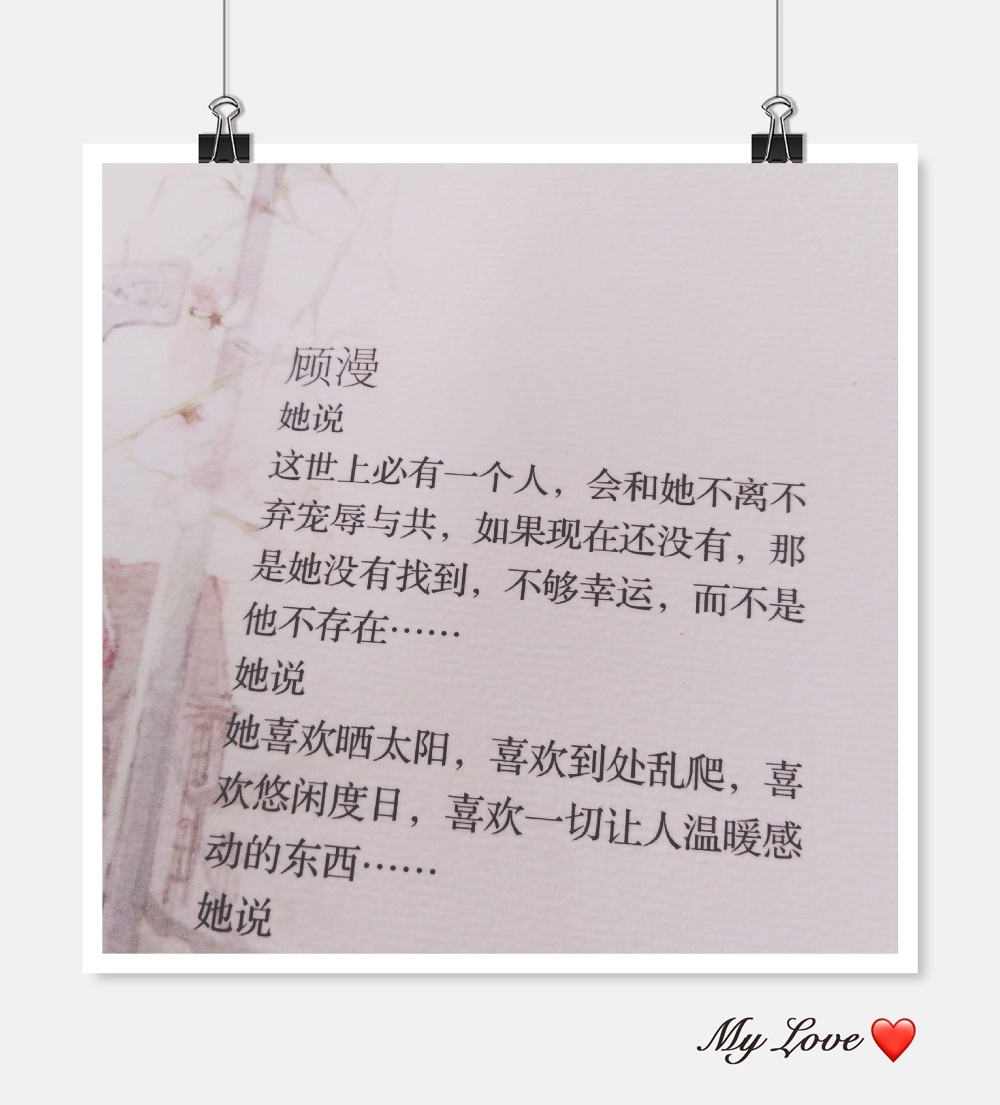 顾漫
她说
这世上必有一个人，会和她不离不
弃宠辱与共，如果现在还没有，那
是她没有找到，不够幸运，而不是
他不存在……
她说
她喜欢晒太阳，喜欢到处乱爬，喜
欢悠闲度日，喜欢一切让人温暖感
动的东西……
她说
My Love ❤️